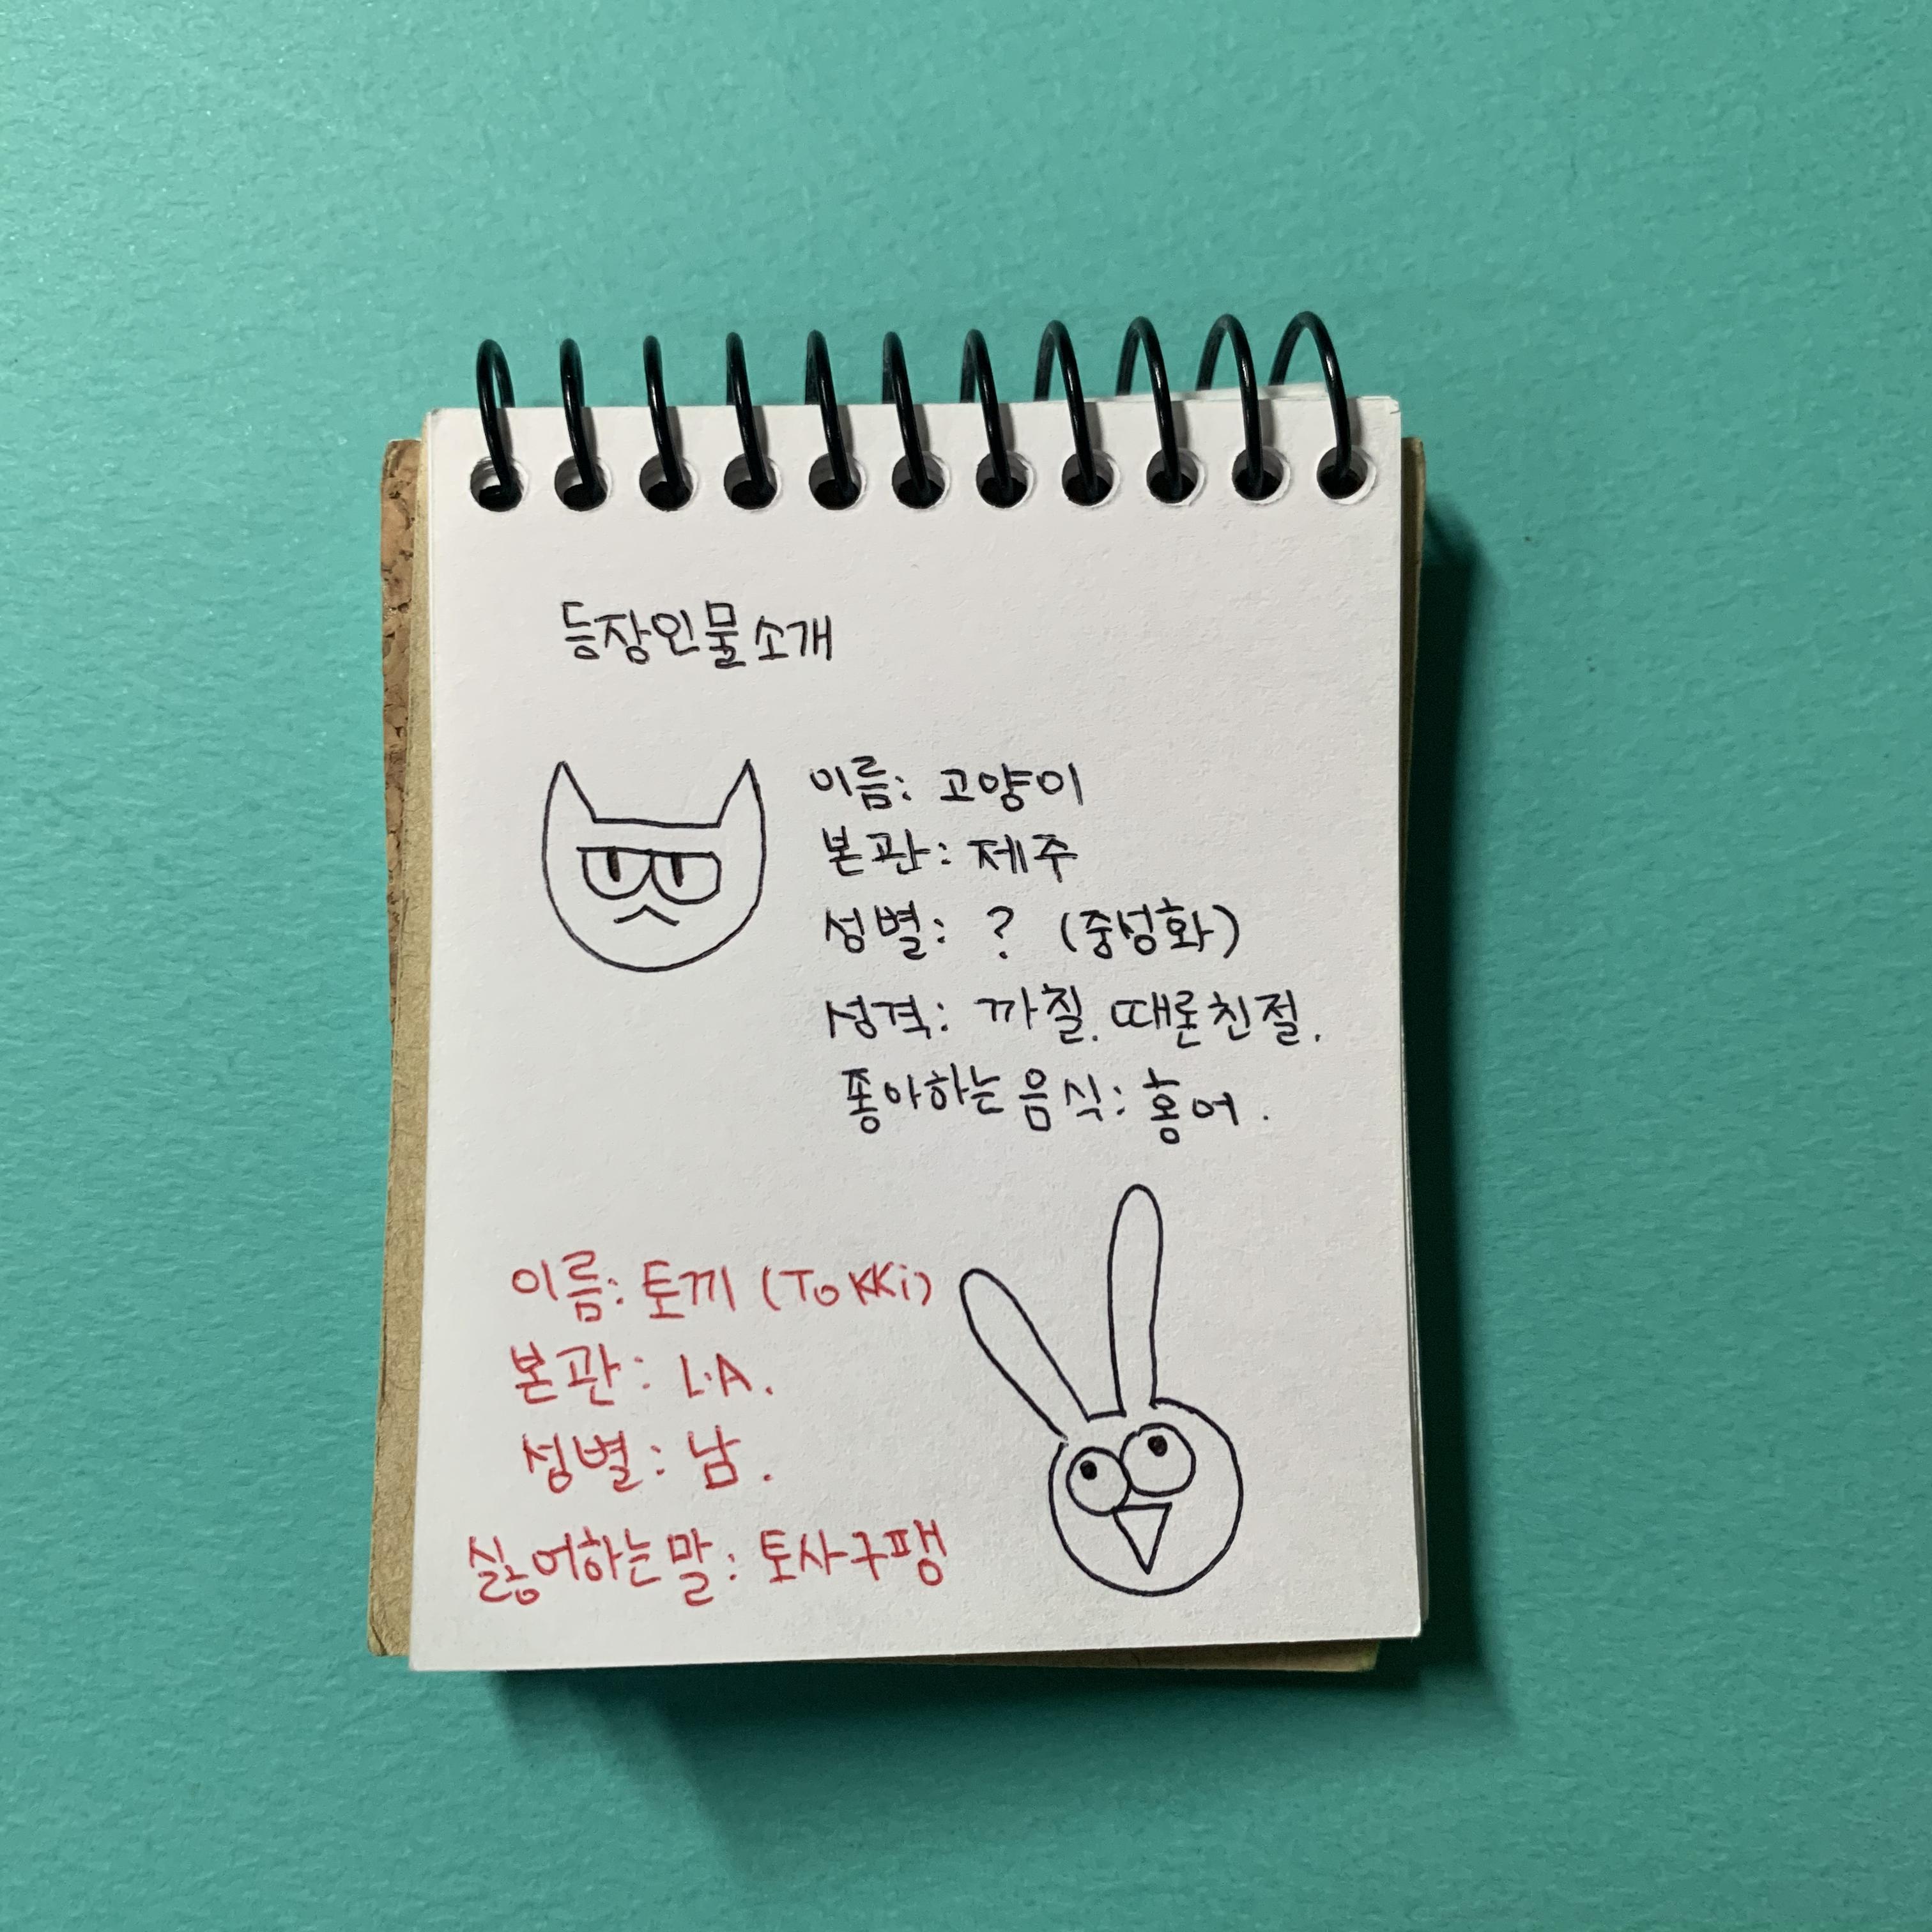 등장인물소개
이름: 고양이
본관: 제주
성별: ? (중성화)
성격: 까칠. 때론친절.
좋아하는 음식: 홍어.
이름: 토끼 (ToKKi)
본관: L.A.
성별: 남.
싫어하는말: 토사구팽